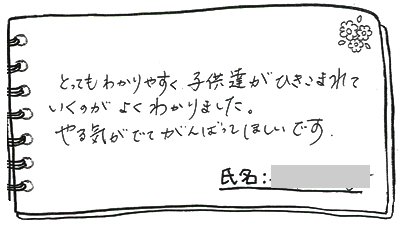 とってもわかりやすく子供達がひきこまれて
いくのがよくわかりました。
やる気がでてがんばってほしいです.
氏名: